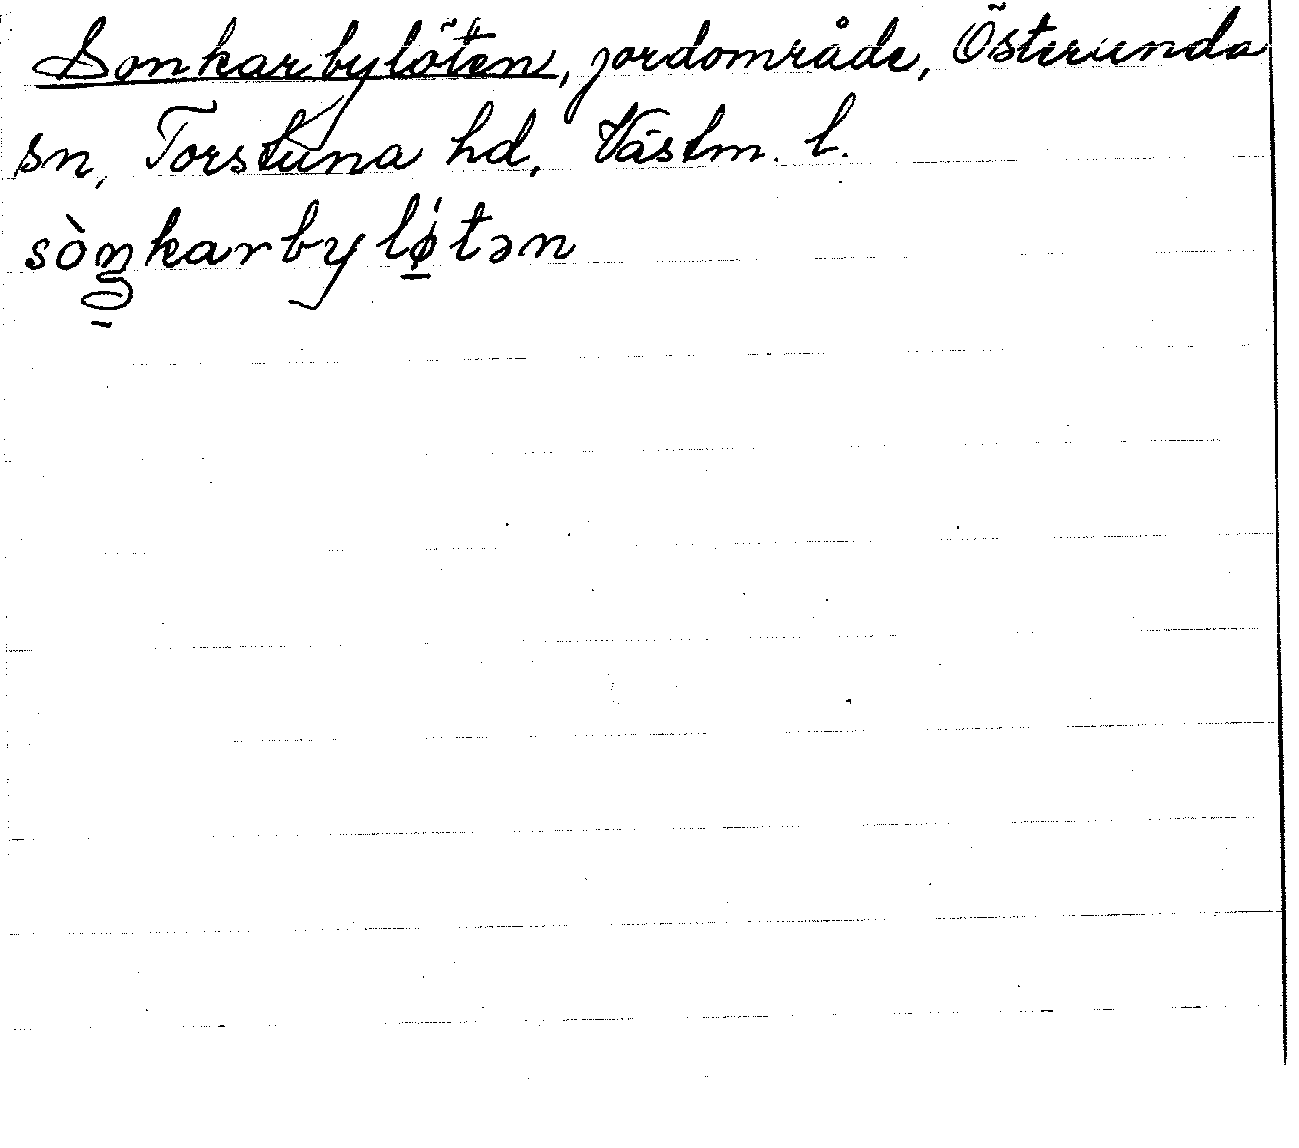 Sonkarbylöten, jordområde, Österunda
sn, Torstuna hd, Västm. l.
sòŋkarbylǿ̱tən